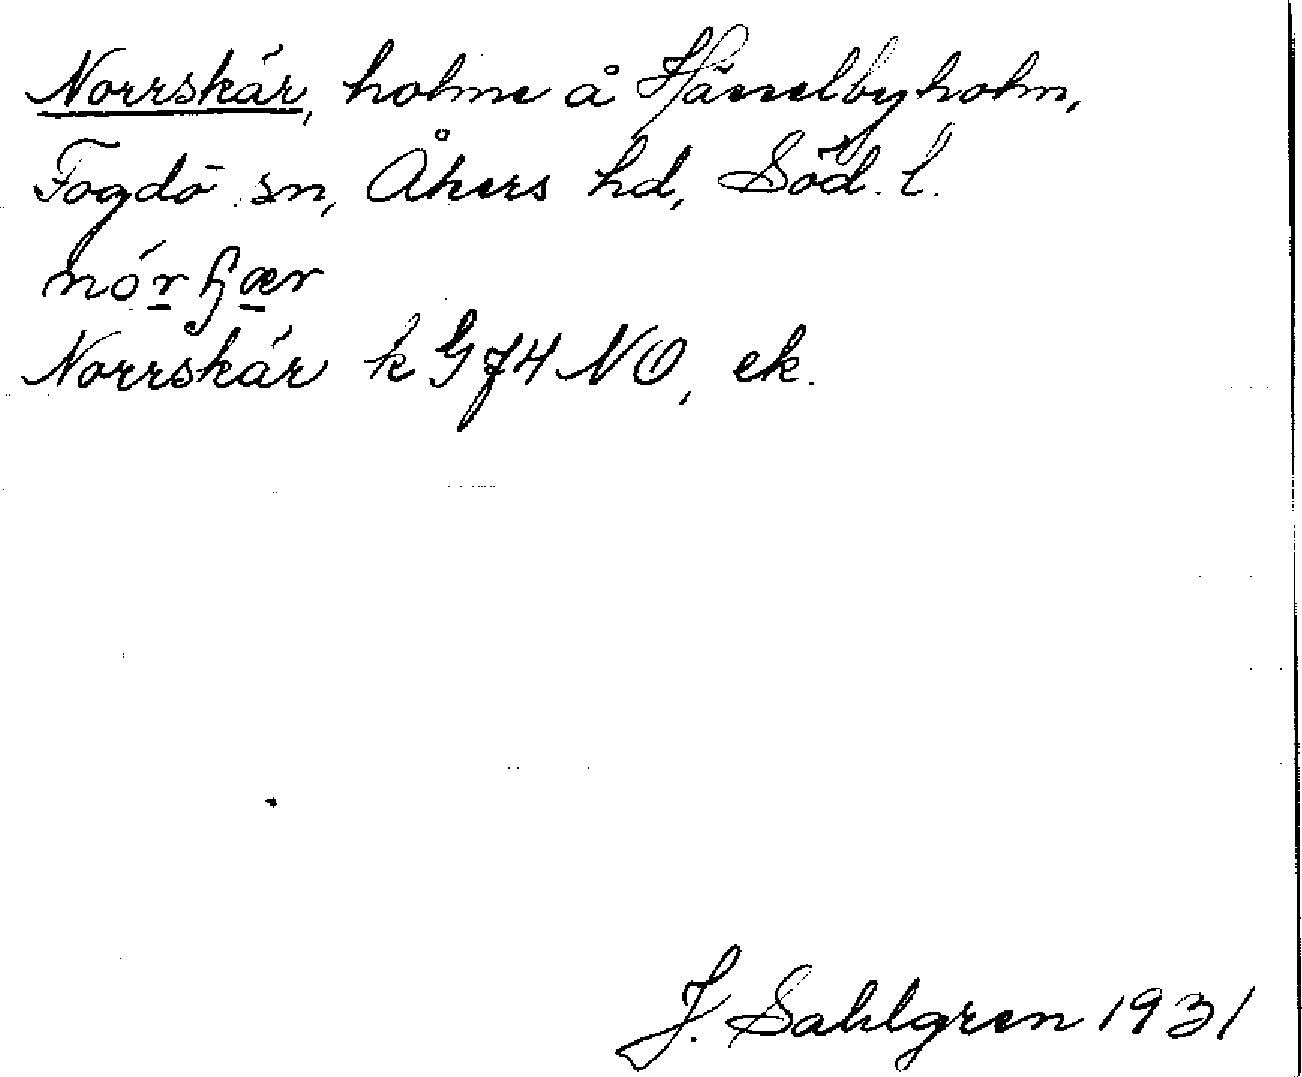 Norrskär, holme å Hässelbyholm,
Fogdö sn, Åkers hd, Söd. l.
Norrskär k G74 NO, ek.
J. Sahlgren 1931